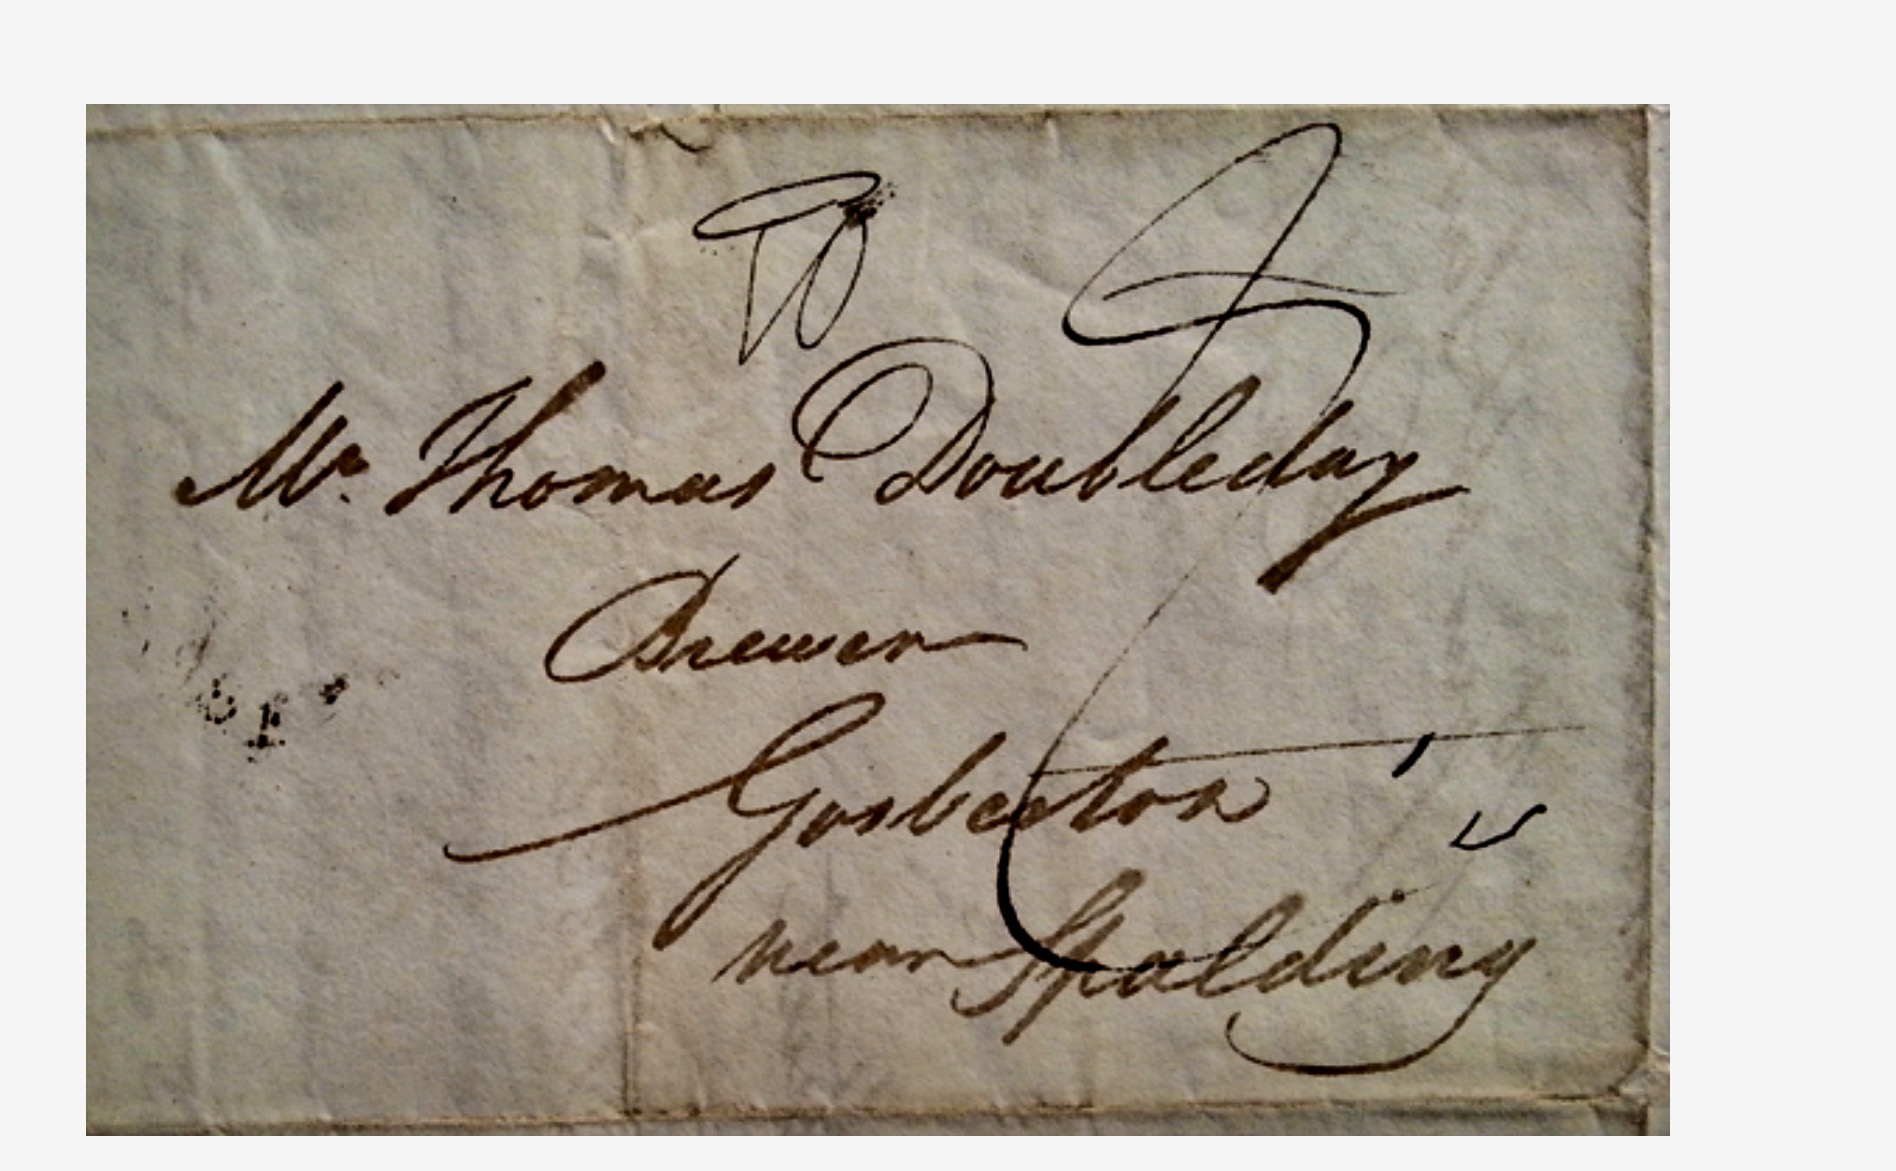 Mr. Thomas Doubleday
Brewer
Gosberton
near Spalding